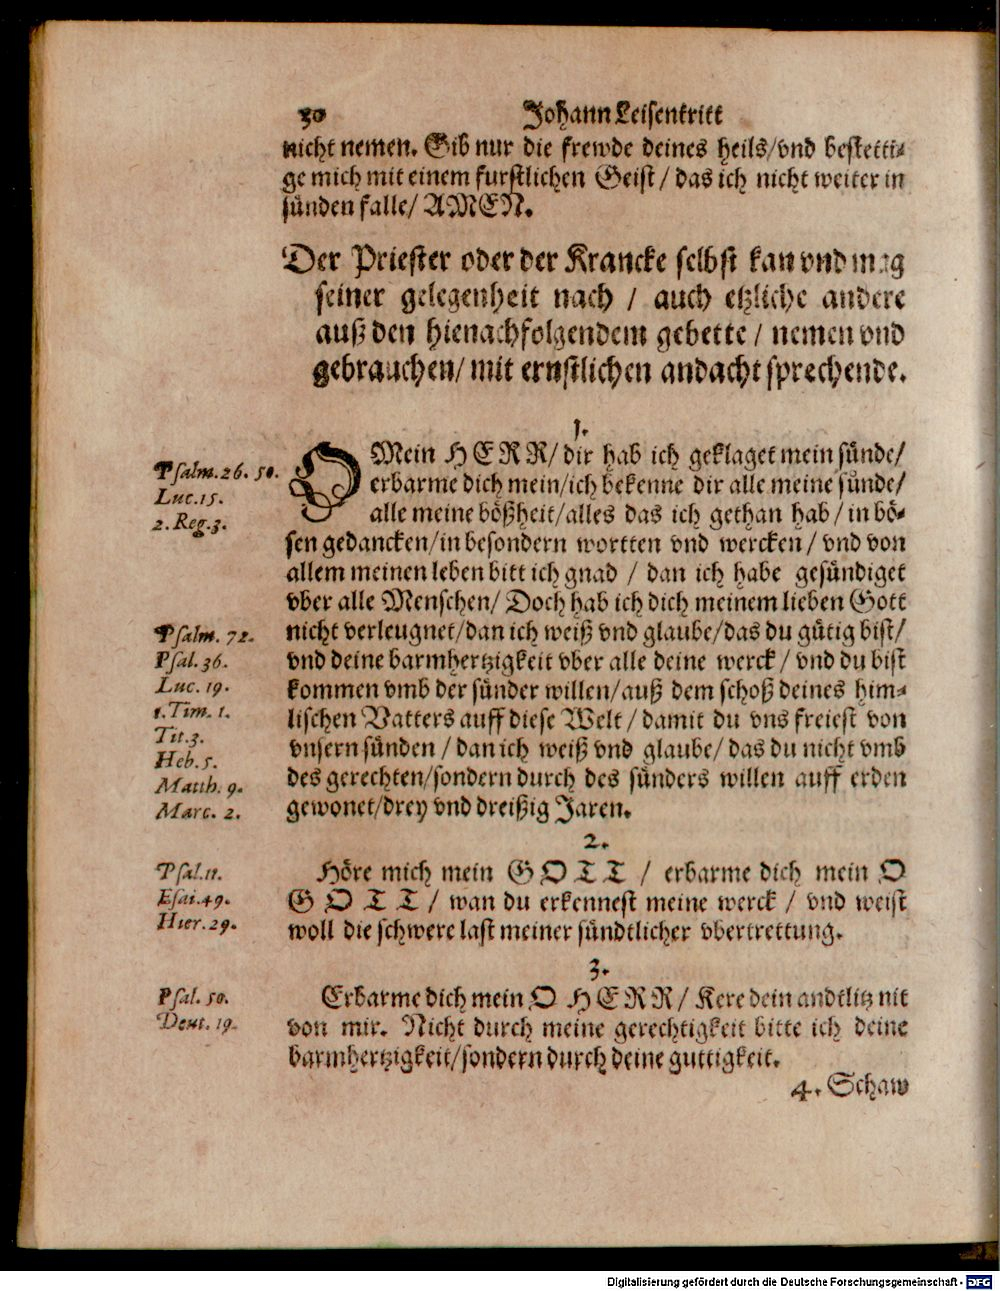 30 Johann Leisentritt
nicht nemen. Gib nur die frewde deines heils/vnd bestetti⸗
ge mich mit einem furstlichen Geist / das ich nicht weiter in
sünden falle/ AMEN.
Der Priester oder der Krancke selbst kan vnd mag
seiner gelegenheit nach / auch etzliche andere
auß den hienachfolgendem gebette / nemen vnd
gebrauchen/ mit ernstlichen andacht sprechende.
1.
Psalm. 26. 50.
Luc. 15.
2. Reg. 3.
O Mein HERR/ dir hab ich geklaget mein sünde/
erbarme dich mein/ich bekenne dir alle meine sünde/
alle meine bößheit/alles das ich gethan hab / in bö⸗
sen gedancken/in besondern wortten vnd wercken / vnd von
allem meinen leben bitt ich gnad / dan ich habe gesündiget
vber alle Menschen/ Doch hab ich dich meinem lieben Gott
Psalm. 72.
Psal. 36.
Luc. 19.
1. Tim. 1.
Tit. 3.
Heb. 5.
Matth. 9.
Marc. 2.
nicht verleugnet/dan ich weiß vnd glaube/das du gütig bist/
vnd deine barmhertzigkeit vber alle deine werck / vnd du bist
kommen vmb der sünder willen/auß dem schoß deines him⸗
lischen Vatters auff diese Welt / damit du vns freiest von
vnsern sünden / dan ich weiß vnd glaube/ das du nicht vmb
des gerechten/sondern durch des sünders willen auff erden
gewonet/drey vnd dreißig Jaren.
2.
Psal. 11.
Esai. 49.
Hier. 29.
Höre mich mein GOTT / erbarme dich mein O
GOTT / wan du erkennest meine werck / vnd weist
woll die schwere last meiner sündtlicher vbertrettung.
3.
Psal. 50.
Deut. 19.
Erbarme dich mein O HERR/ Kere dein andtlitz nit
von mir. Nicht durch meine gerechtigkeit bitte ich deine
barmhertzigkeit/sondern durch deine guttigkeit.
4. Schaw
Digitalisierung gefördert durch die Deutsche Forschungsgemeinschaft - DFG